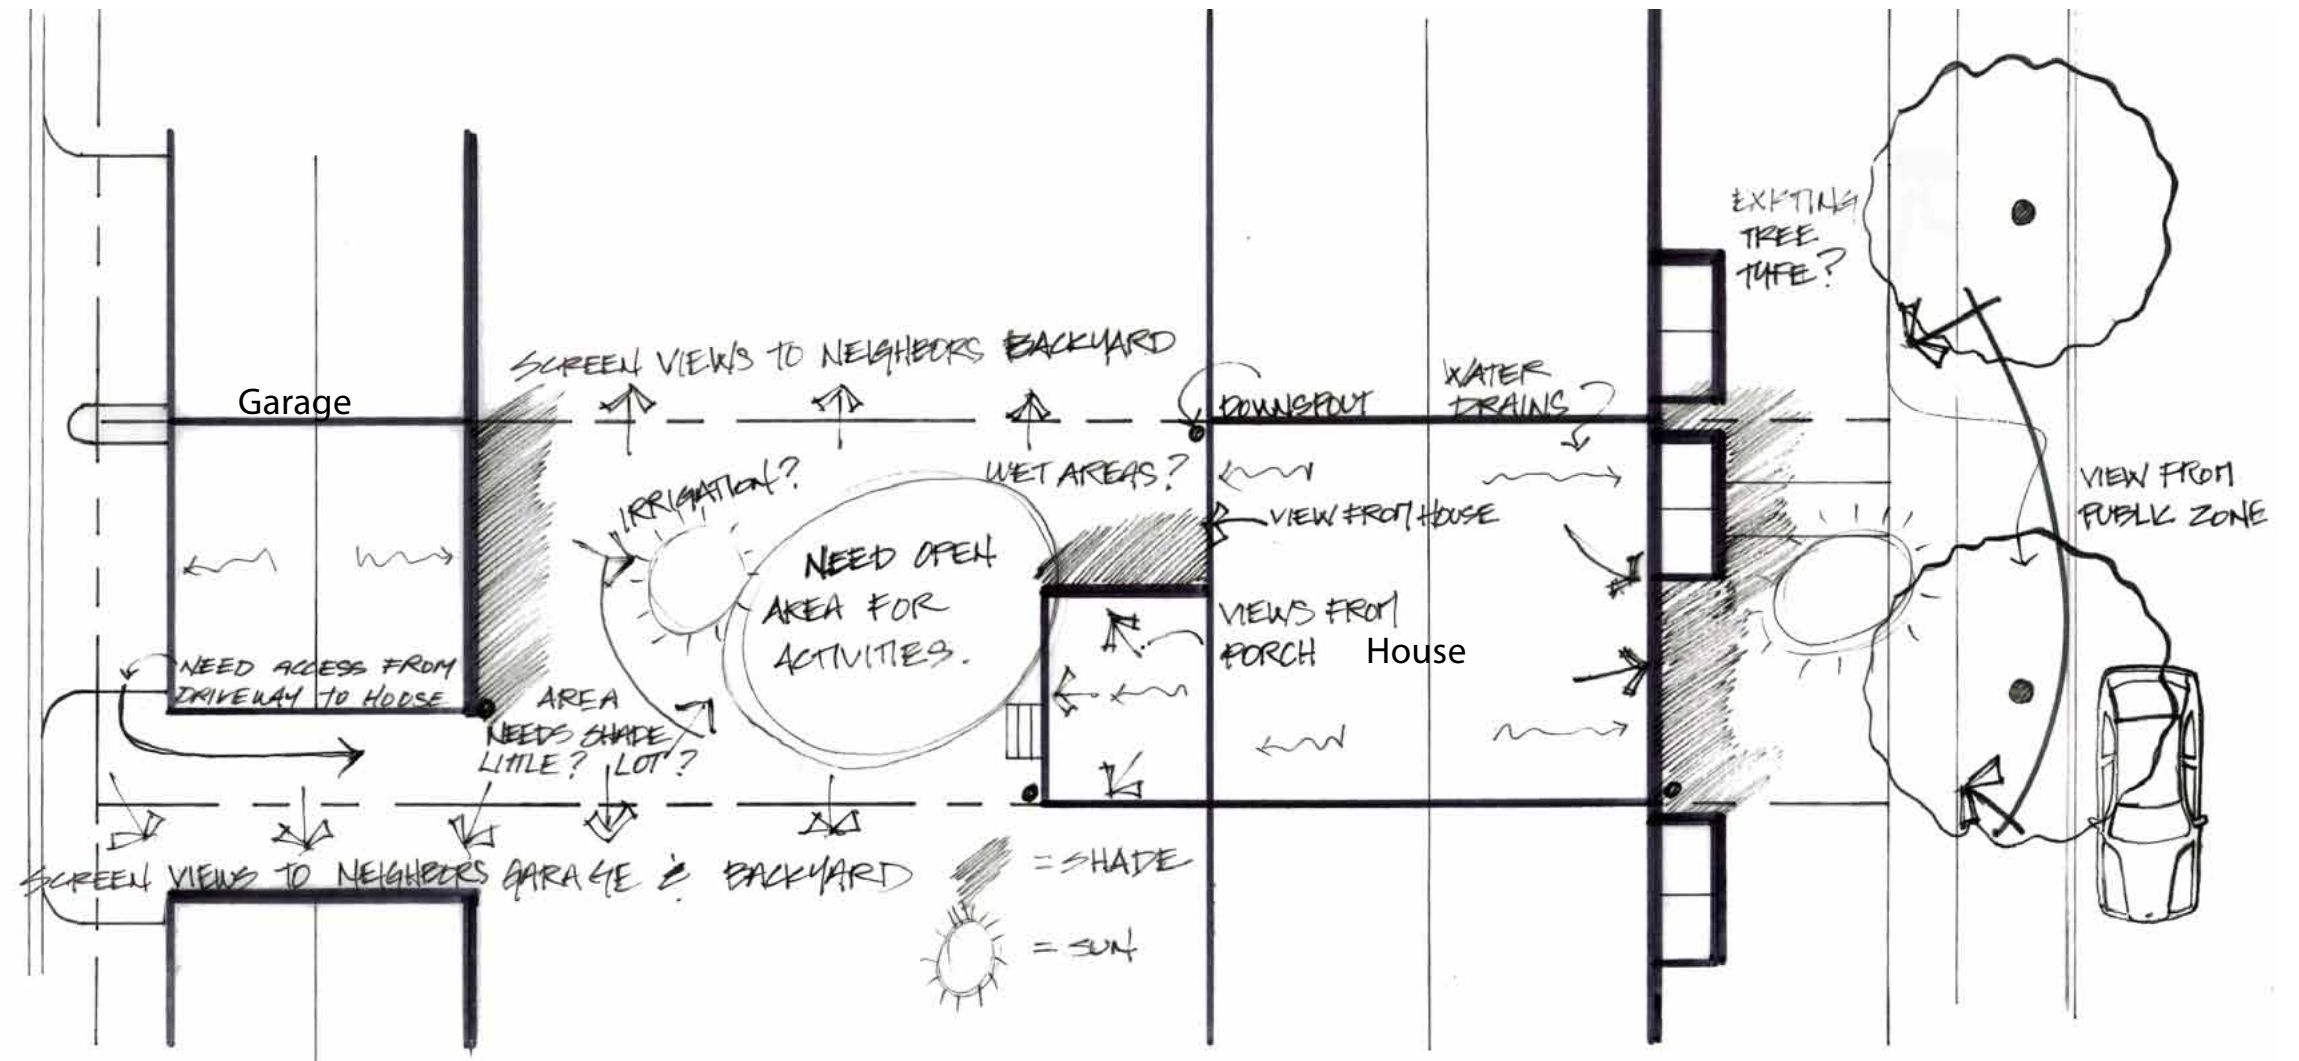 EXISTING
TREE
TYPE?
SCREEN VIEWS TO NEIGHBORS BACKYARD
Garage
DOWNSPOUT
WATER
DRAINS
IRRIGATION?
WET AREAS?
VIEW FROM HOUSE
VIEW FROM
PUBLIC ZONE
NEED OPEN
AREA FOR
ACTIVITIES.
VIEWS FROM
PORCH
House
NEED ACCESS FROM
DRIVEWAY TO HOUSE
AREA
NEEDS SHADE
LITTLE? LOT?
SCREEN VIEWS TO NEIGHBORS GARAGE & BACKYARD
= SHADE
= SUN